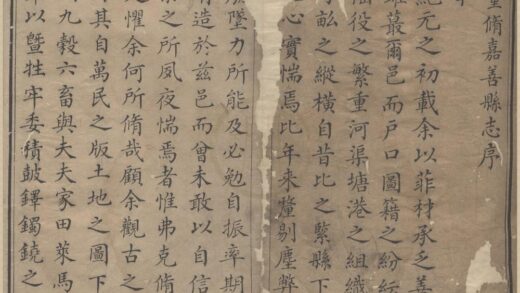 重脩嘉善縣志序
紀元之初載余以菲材承乏善
雖蕞爾邑而戶口圖籍之紛紜
徭役之繁重河渠塘港之組織
畝之縱橫自昔比之緊縣下
心實惴焉比年来釐剔塵弊
墜力所能及必勉自振率期
有造於兹邑而曾未敢以自信
之所夙夜惴焉者惟弗克脩
懼余何所脩哉顧余觀古之
其自萬民之版土地之圖下
九穀六畜與夫夫家田萊馬
以暨牲牢委積皷鐸鐲鐃之